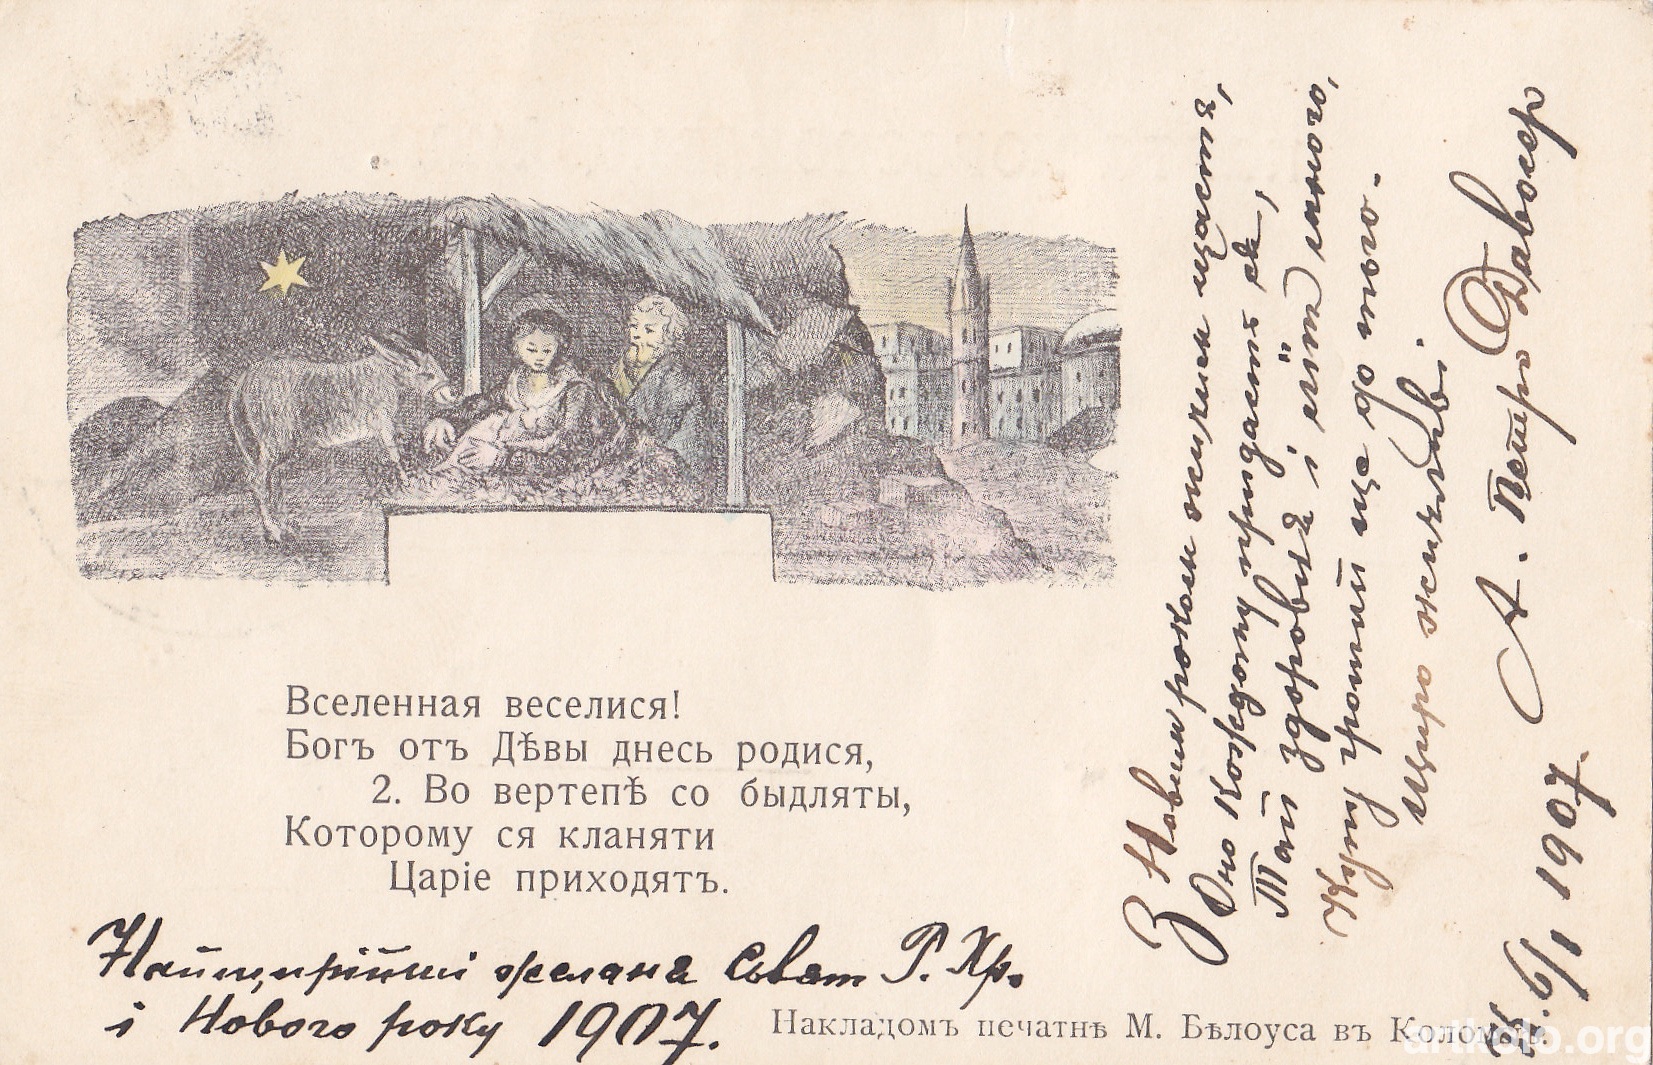 Вселенная веселися!
Богъ отъ Дѣвы днесь родися,
2. Во вертепѣ со быдляты,
Которому ся кланяти
Царіе приходятъ.
Найщирійші желаня Сьвят Р. Хр.
і Нового року 1907.
Накладомъ печатнѣ М. Бѣлоуса въ Коломыѣ.
З Новим роком жичим щастѣ,
Оно кождому придасть сѧ,
Тай здоровлѣ і лїт много,
Купу гроший ще до того.
Щиро жичливі
А. Петро
6/1 1907.
artkolo.org